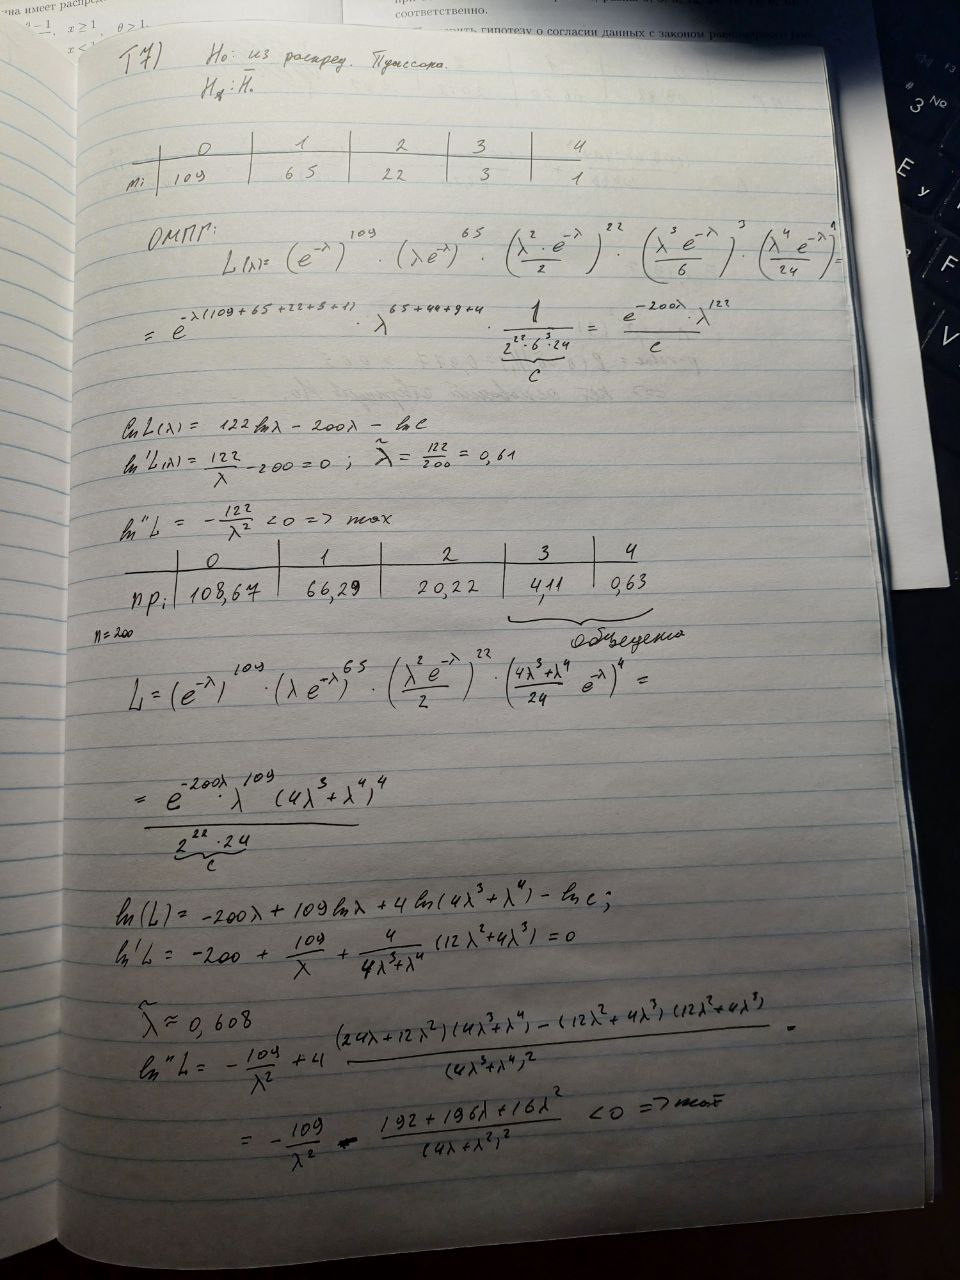 на имеет распре
x ≥ 1, θ > 1.
соответственно.
гипотезу о согласии данных с законом
T7) H₀: из распред. Пуассона.
H₁: H̄₀
0 1 2 3 4
mᵢ 109 65 22 3 1
ОМПГ:
L(λ)= (e^{-λ})^{109} · (λe^{-λ})^{65} · (λ² · e^{-λ} / 2)^{22} · (λ³ e^{-λ} / 6)^{3} · (λ⁴ e^{-λ} / 24)^{1} =
= e^{-λ(109+65+22+3+1)} · λ^{65+44+9+4} · 1 / (2^{22} · 6³ · 24) = e^{-200λ} · λ^{122} / c
c
ln L(λ) = 122 ln λ - 200λ - ln c
ln' L(λ) = 122/λ - 200 = 0 ; λ̃ = 122/200 = 0,61
ln'' L = - 122/λ² < 0 => max
0 1 2 3 4
npᵢ 108,67 66,29 20,22 4,11 0,63
n = 200 объедено
L = (e^{-λ})^{109} · (λ e^{-λ})^{65} · (λ² e^{-λ} / 2)^{22} · ((4λ³+λ⁴)/24 e^{-λ})^{4} =
= e^{-200λ} · λ^{109} (4λ³ + λ⁴)^4 / (2^{22} · 24)
c
ln(L) = -200λ + 109 ln λ + 4 ln(4λ³ + λ⁴) - ln c;
ln' L = -200 + 109/λ + 4/(4λ³+λ⁴) (12λ² + 4λ³) = 0
λ̃ ≈ 0,608
ln'' L = - 109/λ² + 4 ((24λ + 12λ²)(4λ³+λ⁴) - (12λ² + 4λ³)(12λ² + 4λ³)) / (4λ³+λ⁴)²
= - 109/λ² - (192 + 196λ + 16λ²) / (4λ + λ²)² < 0 => max